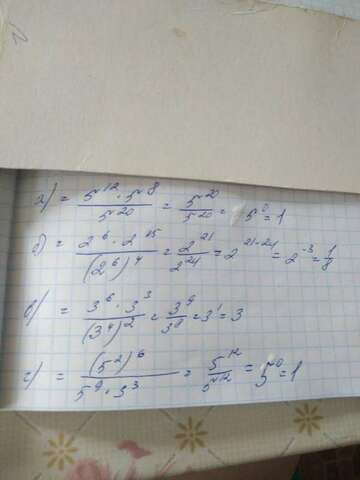 а) = 5^12 · 5^8 / 5^20 = 5^20 / 5^20 = 5^0 = 1
б) = 2^6 · 2^15 / (2^6)^4 = 2^21 / 2^24 = 2^21-24 = 2^-3 = 1/8
в) = 3^6 · 3^3 / (3^4)^2 = 3^9 / 3^8 = 3^1 = 3
г) = (5^2)^6 / 5^9 · 5^3 = 5^12 / 5^12 = 5^0 = 1